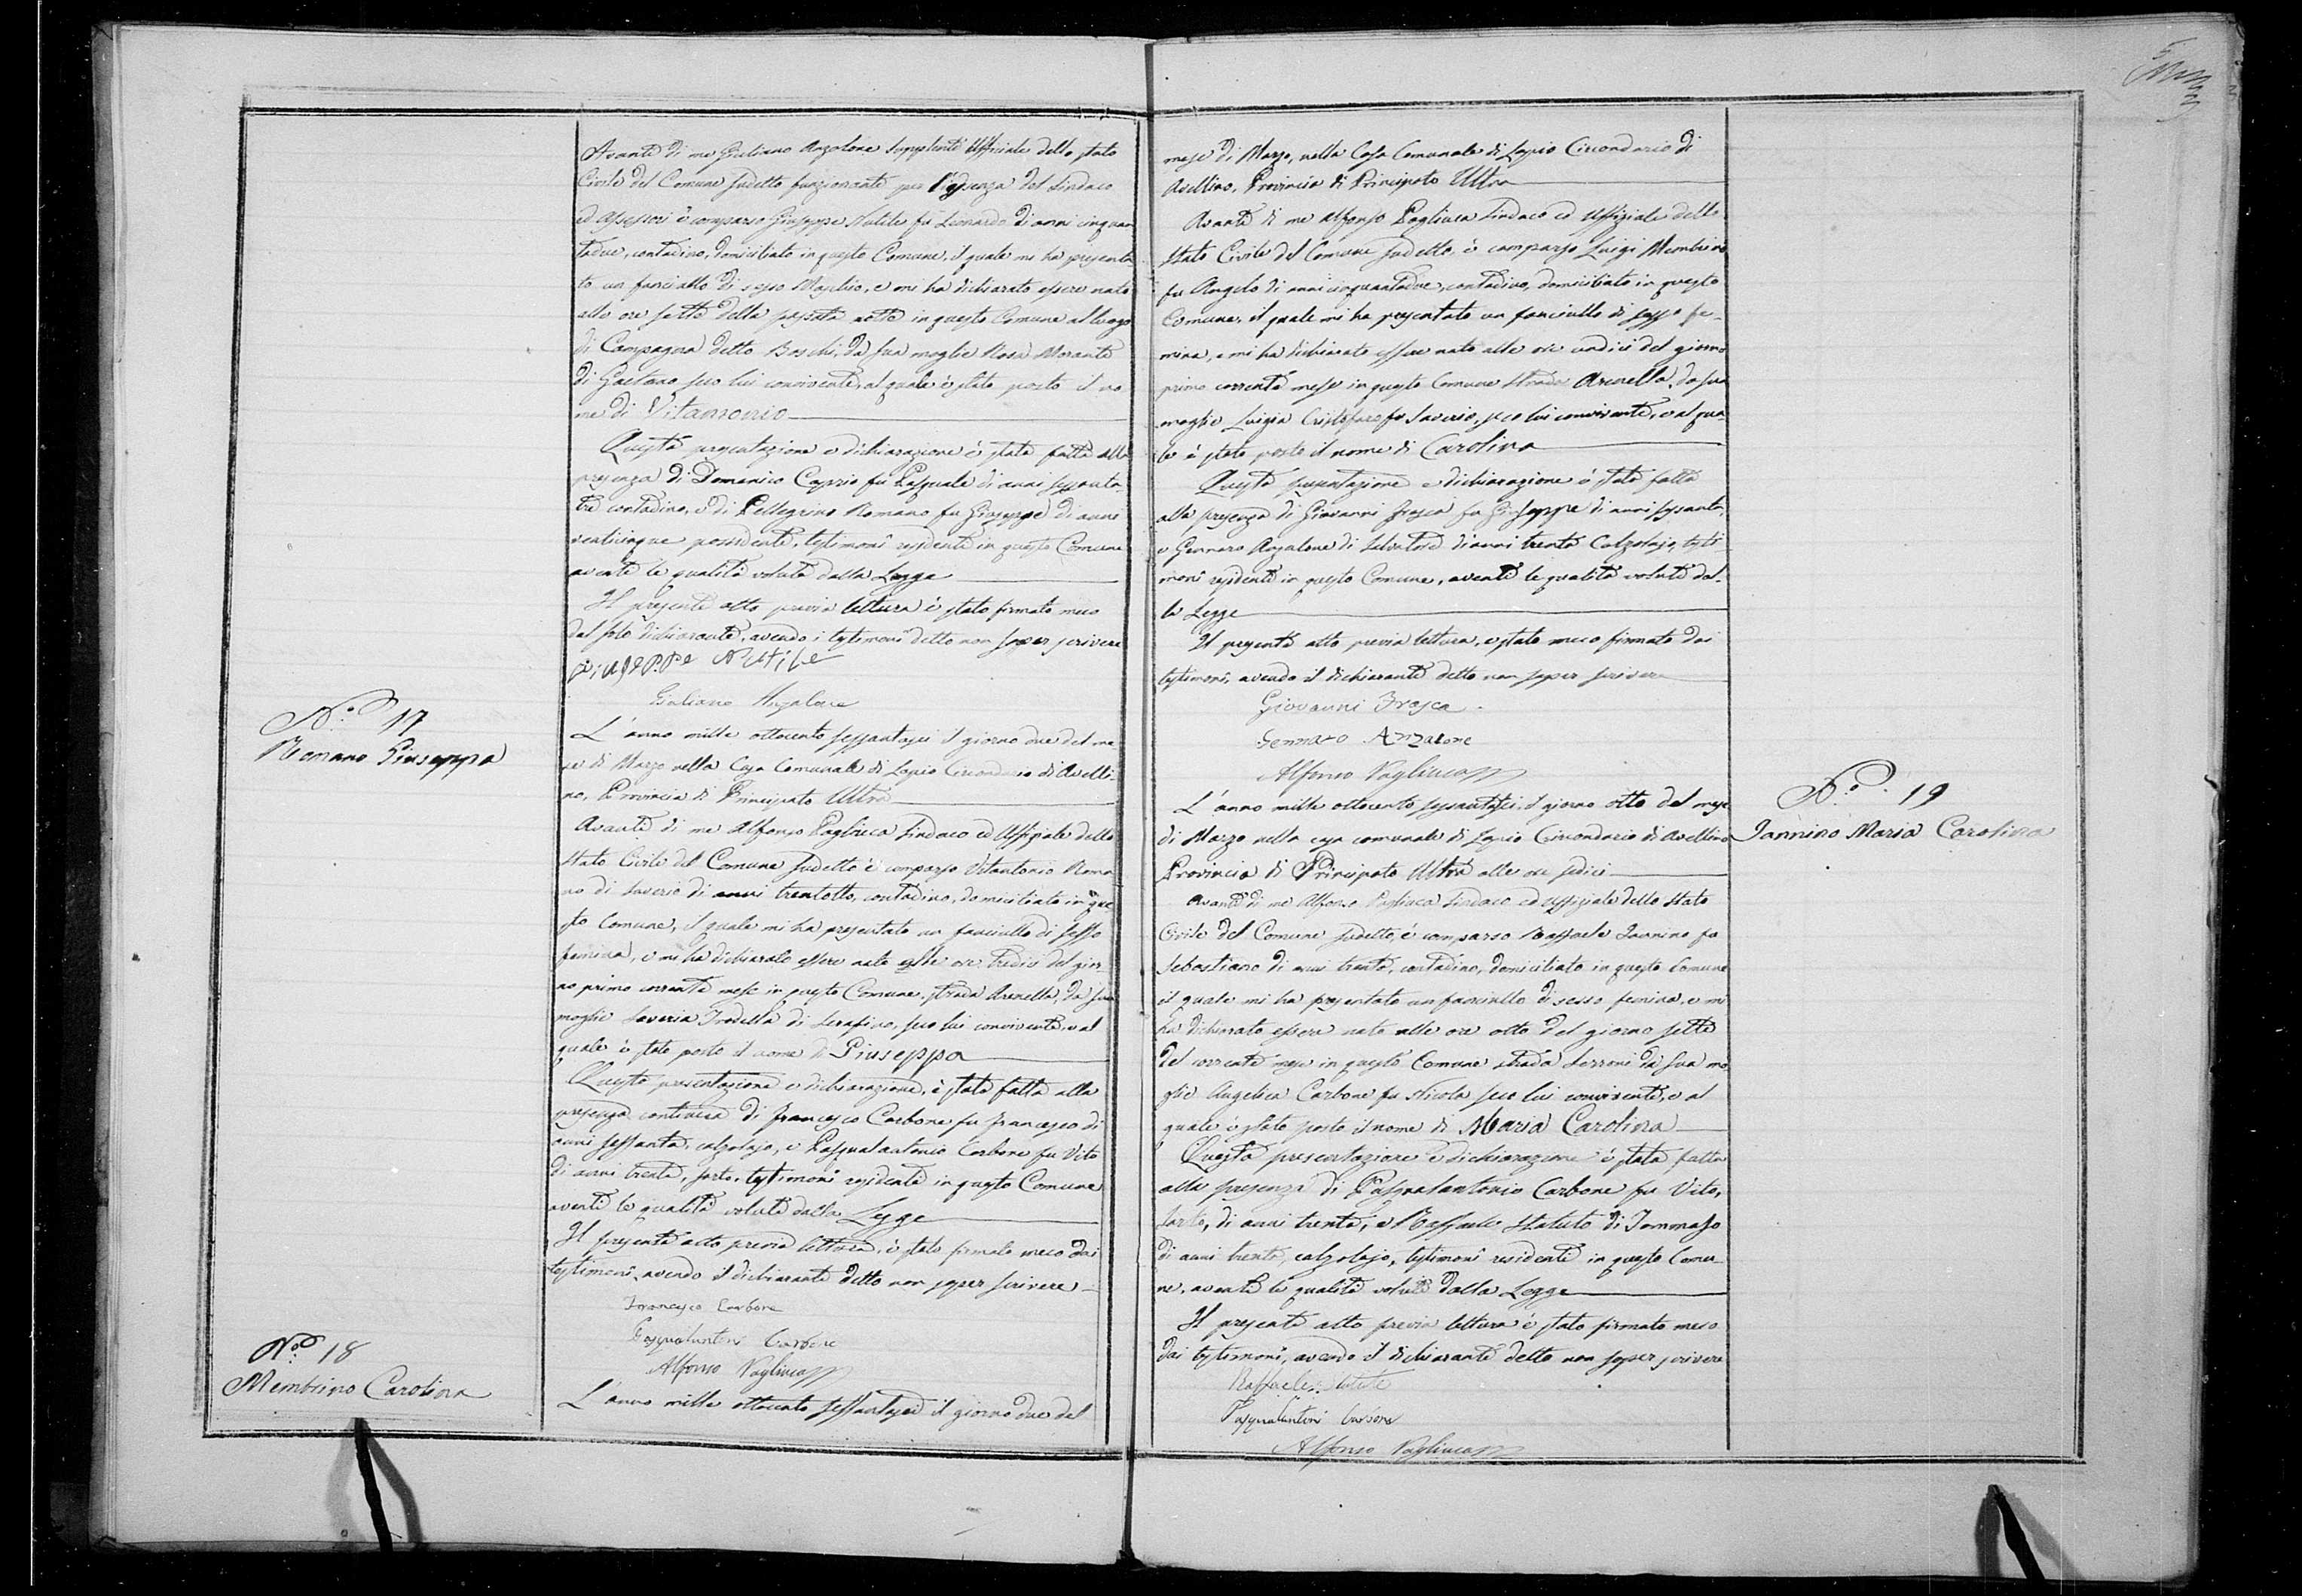 Avanti di me Giuliano Anzalone Supplente Uffiziale dello stato
Civile del Comune sudetto funzionante per l'assenza del Sindaco
ed assessori è comparso Giuseppe Nutile fu Leonardo di anni cinquan
tadue, contadino, domiciliato in questo Comune, il quale mi ha presenta
to un fanciullo di sesso Maschio, e mi ha dichiarato essere nato
alle ore sette della passata notte in questo Comune al luogo
di Campagna detto Boschi, da sua moglie Rosa Morante
di Gaetano seco lui convivente, al quale è stato posto il no
me di Vitantonio
Questa presentazione e dichiarazione è stata fatta alla
presenza di Domenico Caprio fu Pasquale di anni sessanta
tre contadino, e di Pellegrino Romano fu Giuseppe di anni
venticinque possidente, testimoni residenti in questo Comune
aventi le qualità volute dalla Legge
Il presente atto previa lettura è stato firmato meco
dal solo dichiarante, avendo i testimoni detto non saper scrivere
Giuseppe Nutile
Giuliano Anzalone
Nº 17
Romano Giuseppa
L'anno mille ottocento sessantasei il giorno due del me
se di Marzo nella Casa Comunale di Lapio Circondario di Avelli
no, Provincia di Principato Ultra
Avanti di me Alfonso Pagliuca Sindaco ed Uffiziale dello
Stato Civile del Comune sudetto è comparso Vitantonio Roma
no di Saverio di anni trentotto, contadino, domiciliato in que
sto Comune, il quale mi ha presentato un fanciullo di sesso
femina, e mi ha dichiarato essere nato alle ore tredici del gior
no primo corrente mese in questo Comune, strada Arenella, da sua
moglie Saveria Trodella di Serafino, seco lui convivente, e al
quale è stato posto il nome di Giuseppa
Questa presentazione e dichiarazione, è stata fatta alla
presenza continua di Francesco Carbone fu Francesco di
anni sessanta, calzolajo, e Pasqualantonio Carbone fu Vito
di anni trenta, sarto, testimoni residenti in questo Comune
aventi le qualità volute dalla Legge
Il presente atto previa lettura, è stato firmato meco dai
testimoni, avendo il dichiarante detto non saper scrivere
Francesco Carbone
Pasqualantoni Carbone
Alfonso Pagliuca
Nº 18
Membrino Carolina
L'anno mille ottocento sessantasei il giorno due del
mese di Marzo, nella Casa Comunale di Lapio Circondario di
Avellino, Provincia di Principato Ultra
Avanti di me Alfonso Pagliuca Sindaco ed Uffiziale dello
Stato Civile del Comune sudetto, è comparso Luigi Membrino
fu Angelo di anni cinquantadue, contadino, domiciliato in questo
Comune, il quale mi ha presentato un fanciullo di sesso fe-
mina, e mi ha dichiarato essere nato alle ore undici del giorno
primo corrente mese in questo Comune Strada Arenella, da sua
moglie Luigia Cristofaro fu Saverio, seco lui convivente, e al qua-
le è stato posto il nome di Carolina
Questa presentazione e dichiarazione è stata fatta
alla presenza di Giovanni Frasca fu Giuseppe di anni sessanta,
e Gennaro Anzalone di Salvatore di anni trenta Calzolajo, testi
moni residenti in questo Comune, aventi le qualità volute dal-
la Legge
Il presente atto previa lettura, è stato meco firmato dai
testimoni, avendo il dichiarante detto non saper scrivere
Giovanni Frasca
Gennaro Anzalone
Alfonso Pagliuca
Nº 19
Jannino Maria Carolina
L'anno mille ottocento sessantasei, il giorno otto del mese
di Marzo nella casa comunale di Lapio Circondario di Avellino
Provincia di Principato Ultra alle ore sedici
Avanti di me Alfonso Pagliuca Sindaco ed uffiziale dello Stato
Civile del Comune sudetto, è comparso Raffaele Jannino fu
Sebastiano di anni trenta, contadino, domiciliato in questo Comune
il quale mi ha presentato un fanciullo di sesso femina, e mi
ha dichiarato essere nato alle ore otto del giorno sette
del corrente mese in questo Comune strada Serroni da sua mo
glie Angelica Carbone fu Nicola seco lui convivente, e al
quale è stato posto il nome di Maria Carolina
Questa presentazione e dichiarazione è stata fatta
alla presenza di Pasqualantonio Carbone fu Vito,
sarto, di anni trenta, e Raffaele Statuto di Tommaso
di anni trenta, calzolajo, testimoni residenti in questo Comu-
ne, aventi le qualità volute dalla Legge
Il presente atto previa lettura è stato firmato meco
dai testimoni, avendo il dichiarante detto non saper scrivere
Raffaele
Pasqualantoni Carbone
Alfonso Pagliuca